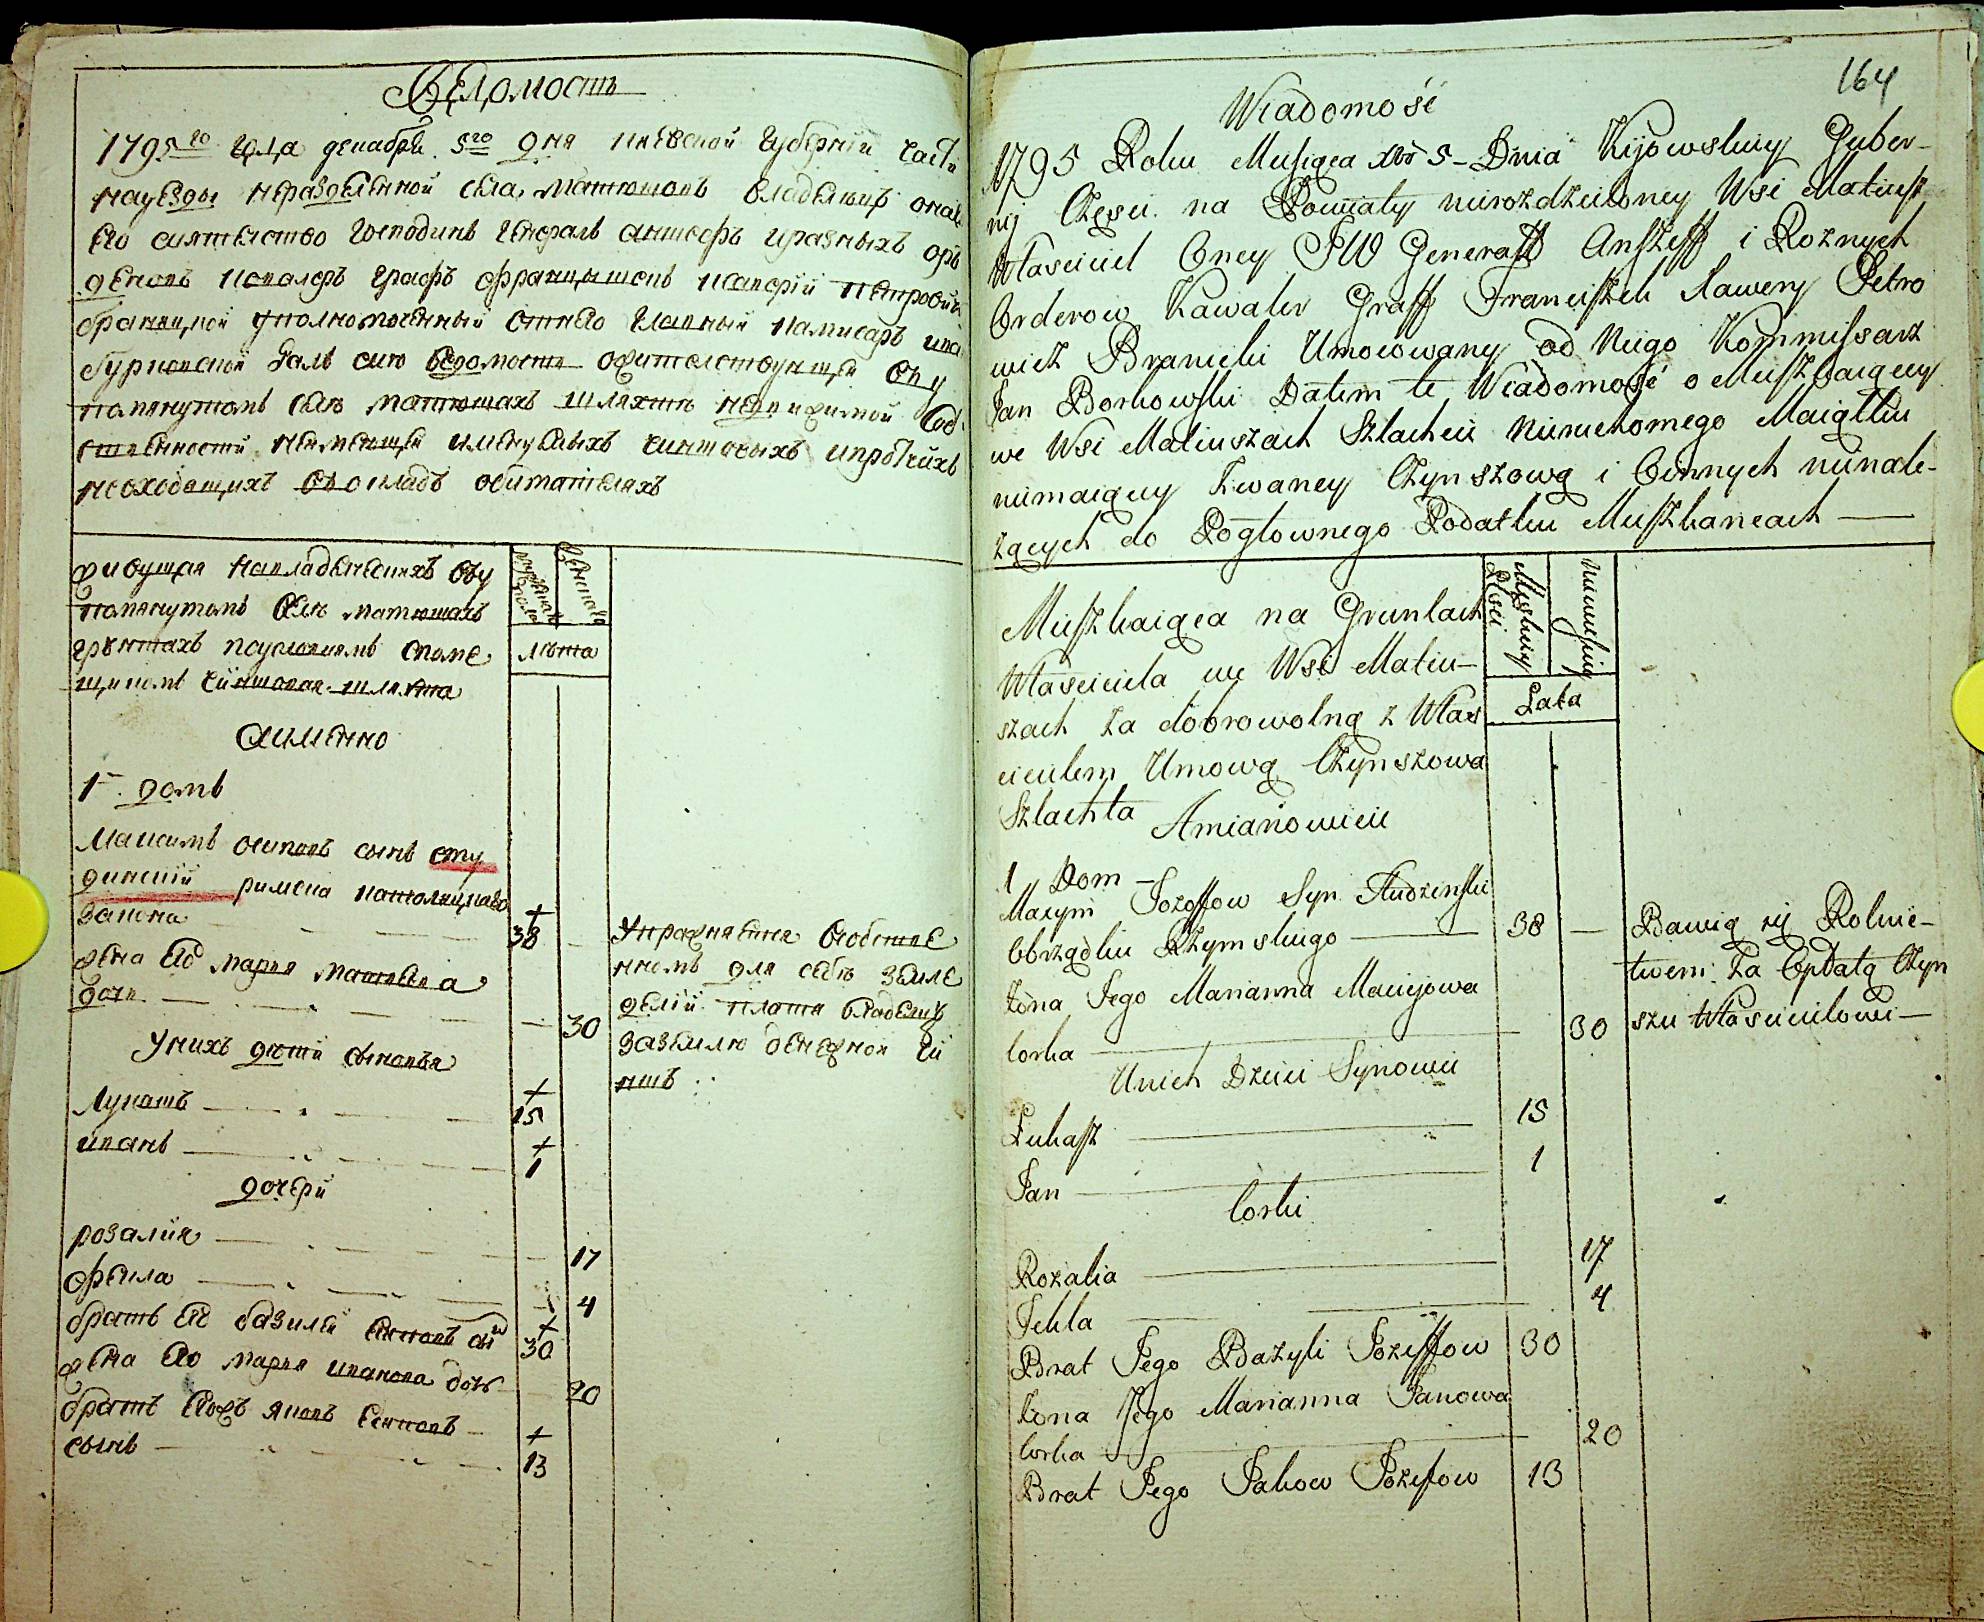 Ведомость
1795го года декабря 5го дня киевской губернїи части
науезды неразделенной села матюшовъ владелецъ онаго
его сиятелство господинъ генералъ аншефъ иразныхъ оръ
деновъ кавалеръ графъ францышекъ ксаверїй петровичъ
браницкой уполномоченный отнего главный камисаръ иванъ
бурковской далъ сию ведомость обителствующей въу
помянутомъ селе матюшахъ шляхте недвижимой соб
ственности неимеющей именуемыхъ чиншовыхъ ипротчихъ
невходящихъ въокладъ обитателяхъ
живущая навладелческихъ въу
помянутомъ селе матюшахъ
грунтахъ поусловиямъ споме
щикомъ чиншовая шляхта
мужеска пола
женска
лета
аименно
1й домъ
Максимъ осиповъ сынъ сту
динскїй римска католицкаго
закона 38
жена его марья матвеева
дочь 30
Унихъ дети сыновья
Лукашъ 15
иванъ 1
дочерй
розалия 17
фекла 4
братъ его базилей осиповъ сынъ 30
жена его марья иванова дочь 20
братъ егожъ яковъ осиповъ
сынъ 13
Упражняется всобстве
нномъ для себя земле
делїи плати владелцу
заземлю денежной чи
ншъ
164
Wiadomość
1795 Roku Miesiąca Xbr 5 Dnia Kijowskiey Guber-
nij Częsci na Powiaty nierozdzieloney Wsi Matiusz
Własciciel Oney JW Generałł Anszeff i Roznych
Orderow Kawaler Graff Franciszek Xawery Petro
wicz Branicki Umocowany od Niego Kommissarz
Jan Borkowski Datem te Wiadomość o Mieszkaiącey
we Wsi Matiuszach Szlachcie Nieruchomego Maiątku
niemaiącey Zwaney Czynszową i Innych nienale-
żących do Pogłownego Podatku Mieszkancach
Mieszkaiąca na Gruntach
Własciciela we Wsi Matiu-
szach za dobrowolną z Włas
cicielem Umową Czynszowa
Szlachta
Męskiey Płci
Niewieskiey
Lata
Amianowicie
1 Dom
Maxym Jozeffow Syn Studzinski
Obrządku Rzymskiego 38
Żona Jego Marianna Maciejowa
Corka 30
Unich Dzieci Synowie
Łukasz 15
Jan 1
Corki
Rozalia 17
Tekla 4
Brat Jego Bazyli Jozeffow 30
Żona Jego Marianna Janowa
Corka 20
Brat Jego Jakow Jozefow 13
Bawią się Rolnic-
twem za Opłatą Czyn
szu Własicielowi